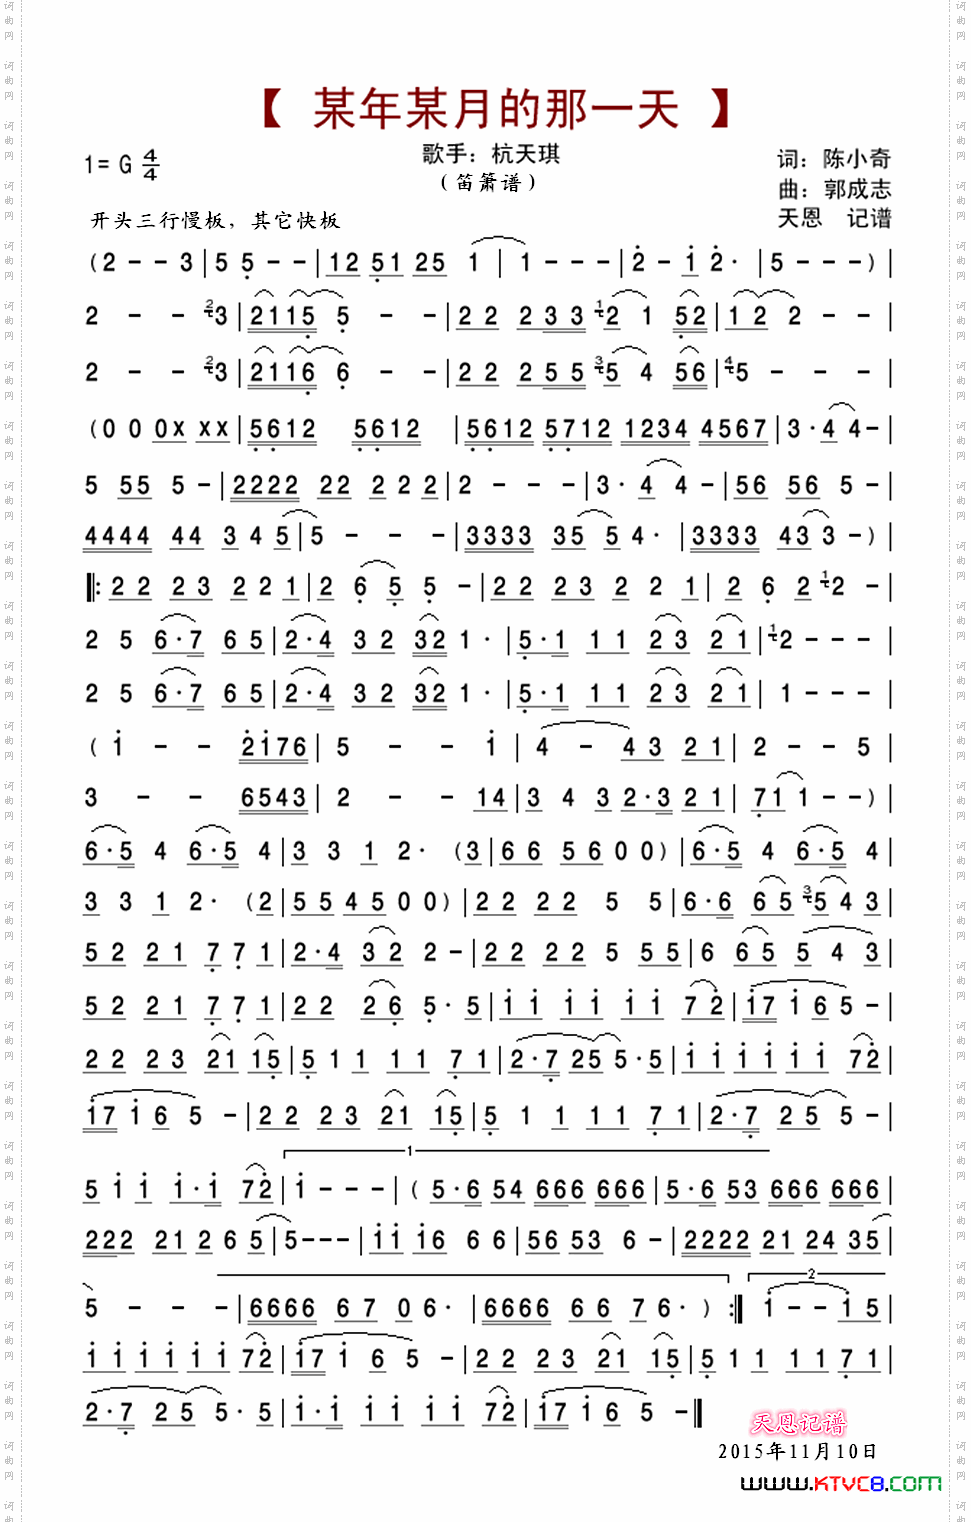 【 某年某月的那一天 】
1= G 4/4
歌手：杭天琪
（笛箫谱）
词：陈小奇
曲：郭成志
天恩 记谱
开头三行慢板，其它快板
( 2 - - 3 | 5 5 - - | 12 51 25 1 | 1 - - - | 2 - i 2 · | 5 - - - ) |
2 - - 23 | 2115 5 - - | 2 2 2 33 12 1 52 | 1 2 2 - - |
2 - - 23 | 2116 6 - - | 2 2 2 55 35 4 56 | 45 - - - |
( 0 0 0X XX | 5612 5612 | 5612 5712 1234 4567 | 3 · 4 4 - |
5 55 5 - | 2222 22 2 2 2 | 2 - - - | 3 · 4 4 - | 56 56 5 - |
4444 44 3 4 5 | 5 - - - | 3333 35 5 4 · | 3333 43 3 - ) |
‖: 2 2 2 3 2 2 1 | 2 6 5 5 - | 2 2 2 3 2 2 1 | 2 6 2 12 - |
2 5 6 · 7 6 5 | 2 · 4 3 2 32 1 · | 5 · 1 1 1 2 3 2 1 | 12 - - - |
2 5 6 · 7 6 5 | 2 · 4 3 2 32 1 · | 5 · 1 1 1 2 3 2 1 | 1 - - - |
( i - - 2i76 | 5 - - i | 4 - 4 3 2 1 | 2 - - 5 |
3 - - 6543 | 2 - - 14 | 3 4 3 2 · 3 2 1 | 71 1 - - ) |
6 · 5 4 6 · 5 4 | 3 3 1 2 · ( 3 | 6 6 5 6 0 0 ) | 6 · 5 4 6 · 5 4 |
3 3 1 2 · ( 2 | 5 5 4 5 0 0 ) | 2 2 2 2 5 5 | 6 · 6 6 5 35 4 3 |
5 2 2 1 7 7 1 | 2 · 4 3 2 2 - | 2 2 2 2 5 5 5 | 6 6 5 5 4 3 |
5 2 2 1 7 7 1 | 2 2 2 6 5 · 5 | i i i i i i 7 2 | i7 i 6 5 - |
2 2 2 3 21 15 | 5 1 1 1 1 7 1 | 2 · 7 25 5 · 5 | i i i i i i 72 |
i7 i 6 5 - | 2 2 2 3 21 15 | 5 1 1 1 1 7 1 | 2 · 7 2 5 5 - |
1
5 i i i · i 72 | i - - - | ( 5 · 6 54 666 666 | 5 · 6 53 666 666 |
222 21 2 6 5 | 5 - - - | i i i6 6 6 | 56 53 6 - | 2222 21 24 35 |
2
5 - - - | 6666 6 7 0 6 · | 6666 6 6 7 6 · ) :‖ i - - i 5 |
i i i i i i 72 | i7 i 6 5 - | 2 2 2 3 21 15 | 5 1 1 1 1 7 1 |
2 · 7 2 5 5 · 5 | i · i i i i i 72 | i7 i 6 5 - ‖
天恩记谱
2015年11月10日
www.KTVC8.com